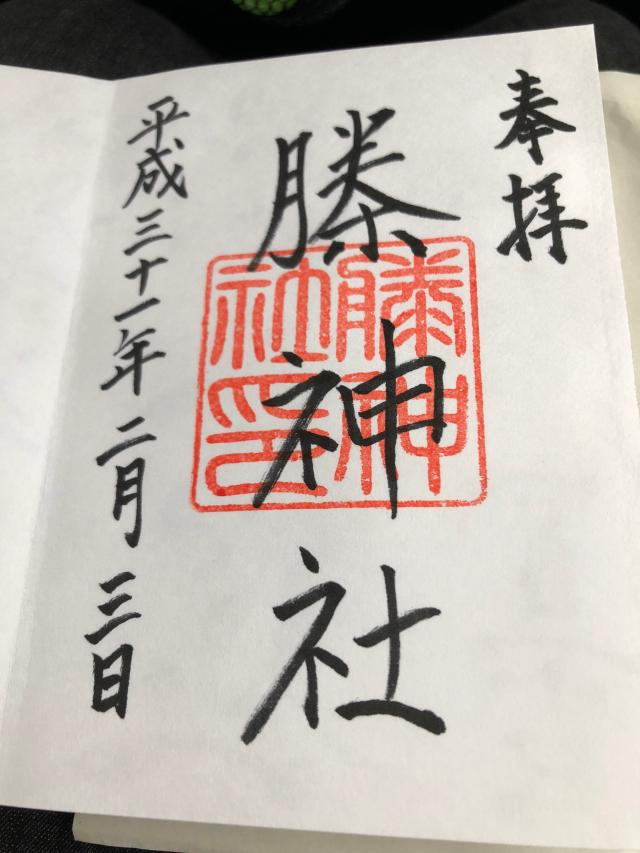 奉拝
榺神社
榺神
社印
平成三十一年二月三日